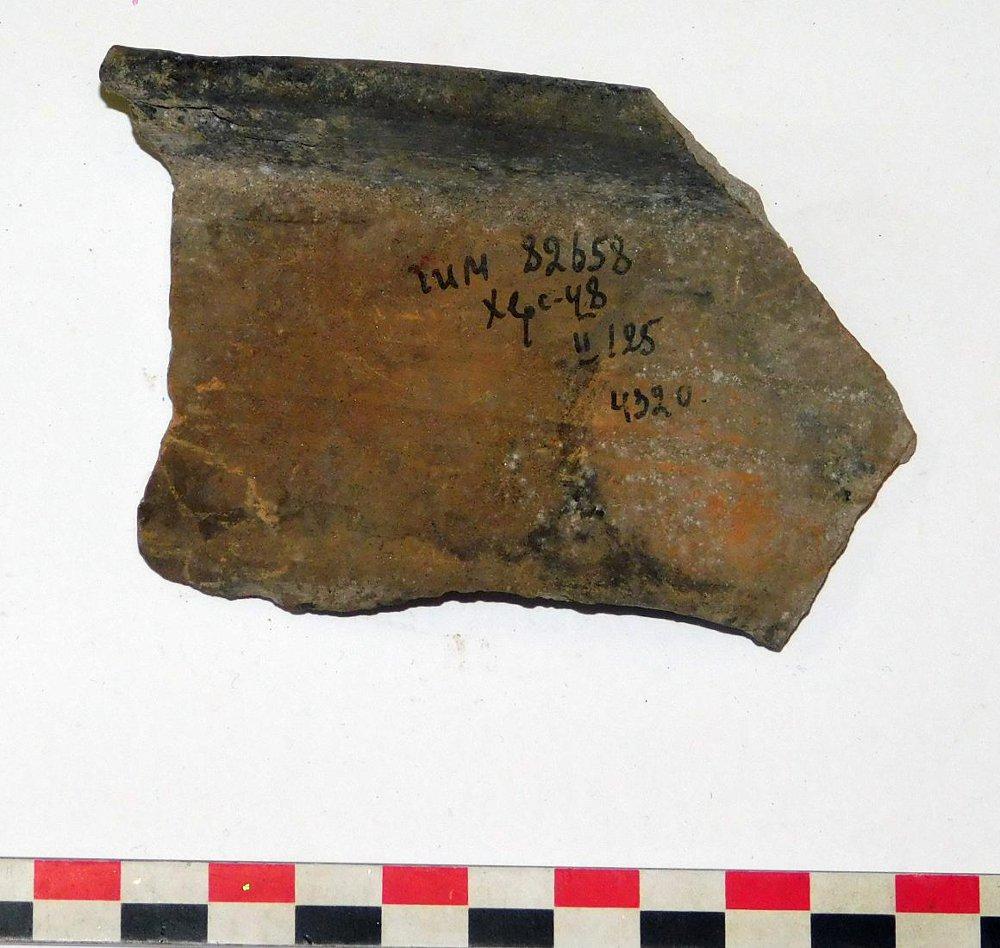 гим 82658
Херс-48
II 125
4320.